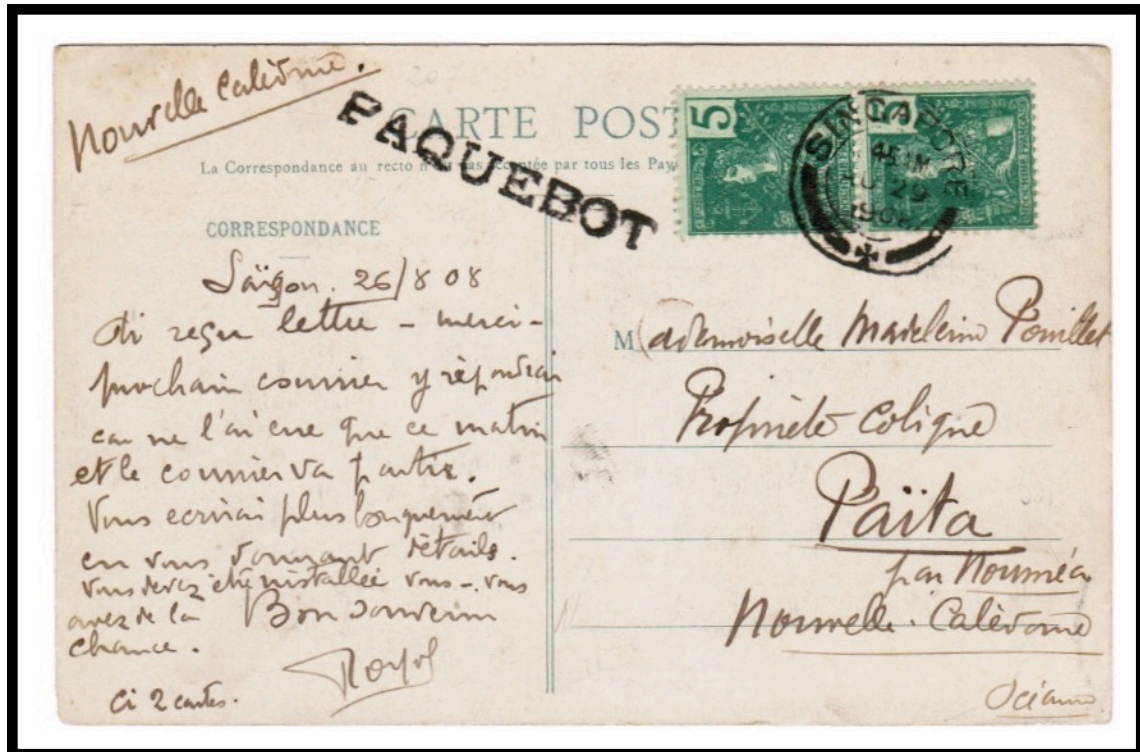 Nouvelle Calédonie.
CARTE POST
PAQUEBOT
La Correspondance au recto n'est pas acceptée par tous les Pay
5
5
SINGAPORE
45 M
AU 29
190
CORRESPONDANCE
Saïgon. 26/8 08
Ai reçu lettre - merci -
prochain courrier y répondrai
car ne l'ai eue que ce matin
et le courrier va partir.
Vous écrirai plus longuement
en vous donnant détails.
Vous devez être installée vous - vous
avez de la
chance.
Bon souvenir
Ci 2 cartes.
Mademoiselle Madeleine Pouillet
Propriété Coligne
Païta
par Nouméa
Nouvelle. Calédonie
Océanie